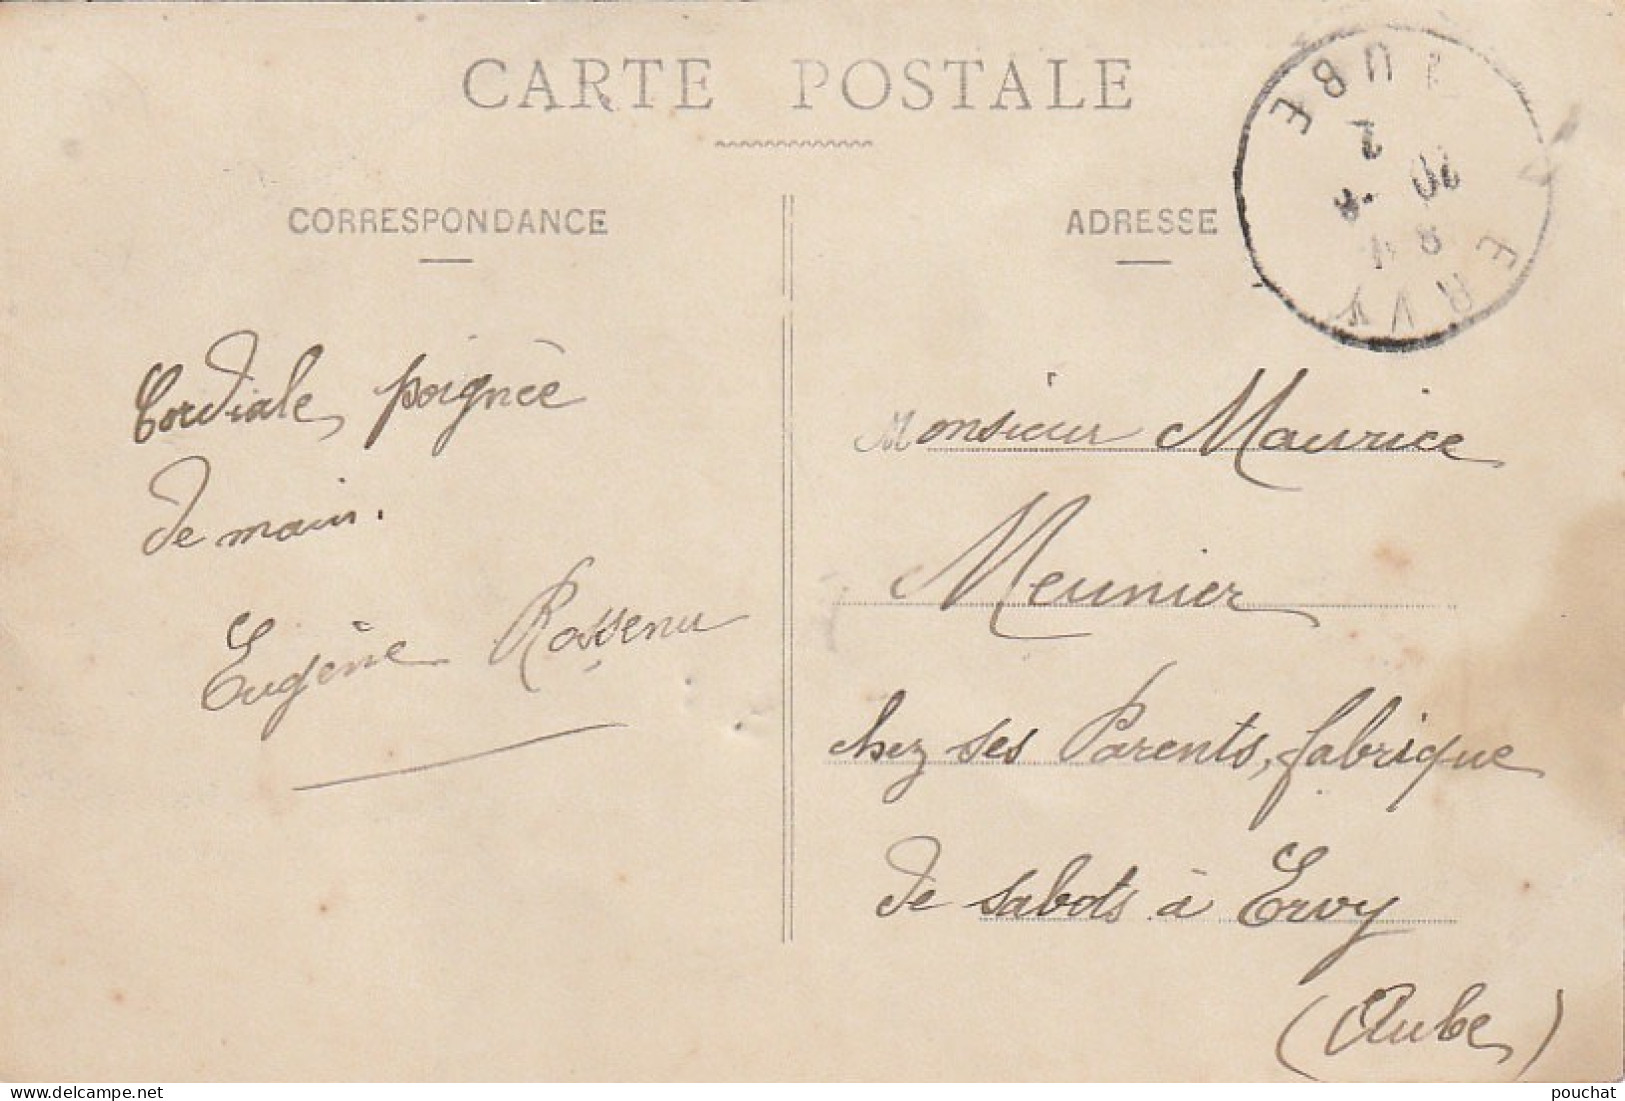 CARTE POSTALE
CORRESPONDANCE
Cordiale poignée
de main.
Eugène
ADRESSE
Monsieur Maurice
Meunier
chez ses Parents, fabrique
de sabots à Ervy
(Aube)
ERVY
AUBE
delcampe.net
pouchat